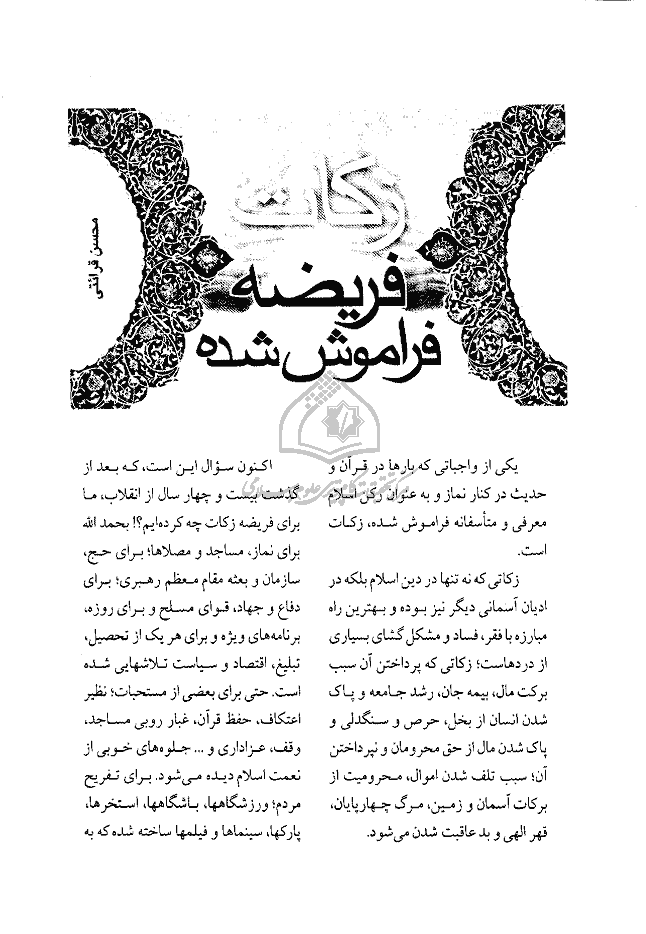 زکات
فریضه
فراموش شده
محسن قرائتی
یکی از واجباتی که بارها در قرآن و
حدیث در کنار نماز و به عنوان رکن اسلام
معرفی و متأسفانه فراموش شده، زکات
است.
زکاتی که نه تنها در دین اسلام بلکه در
ادیان آسمانی دیگر نیز بوده و بهترین راه
مبارزه با فقر، فساد و مشکل گشای بسیاری
از دردهاست؛ زکاتی که پرداختن آن سبب
برکت مال، بیمه جان، رشد جامعه و پاک
شدن انسان از بخل، حرص و سنگدلی و
پاک شدن مال از حق محرومان و نپرداختن
آن؛ سبب تلف شدن اموال، محرومیت از
برکات آسمان و زمین، مرگ چهارپایان،
قهر الهی و بد عاقبت شدن می‌شود.
اکنون سؤال این است، که بعد از
گذشت بیست و چهار سال از انقلاب، ما
برای فریضه زکات چه کرده‌ایم؟! بحمد الله
برای نماز، مساجد و مصلاها؛ برای حج،
سازمان و بعثه مقام معظم رهبری؛ برای
دفاع و جهاد، قوای مسلح و برای روزه،
برنامه‌های ویژه و برای هر یک از تحصیل،
تبلیغ، اقتصاد و سیاست تلاشهایی شده
است. حتی برای بعضی از مستحبات؛ نظیر
اعتکاف، حفظ قرآن، غبار روبی مساجد،
وقف، عزاداری و ... جلوه‌های خوبی از
نعمت اسلام دیده می‌شود. برای تفریح
مردم؛ ورزشگاهها، باشگاهها، استخرها،
پارکها، سینماها و فیلمها ساخته شده که به